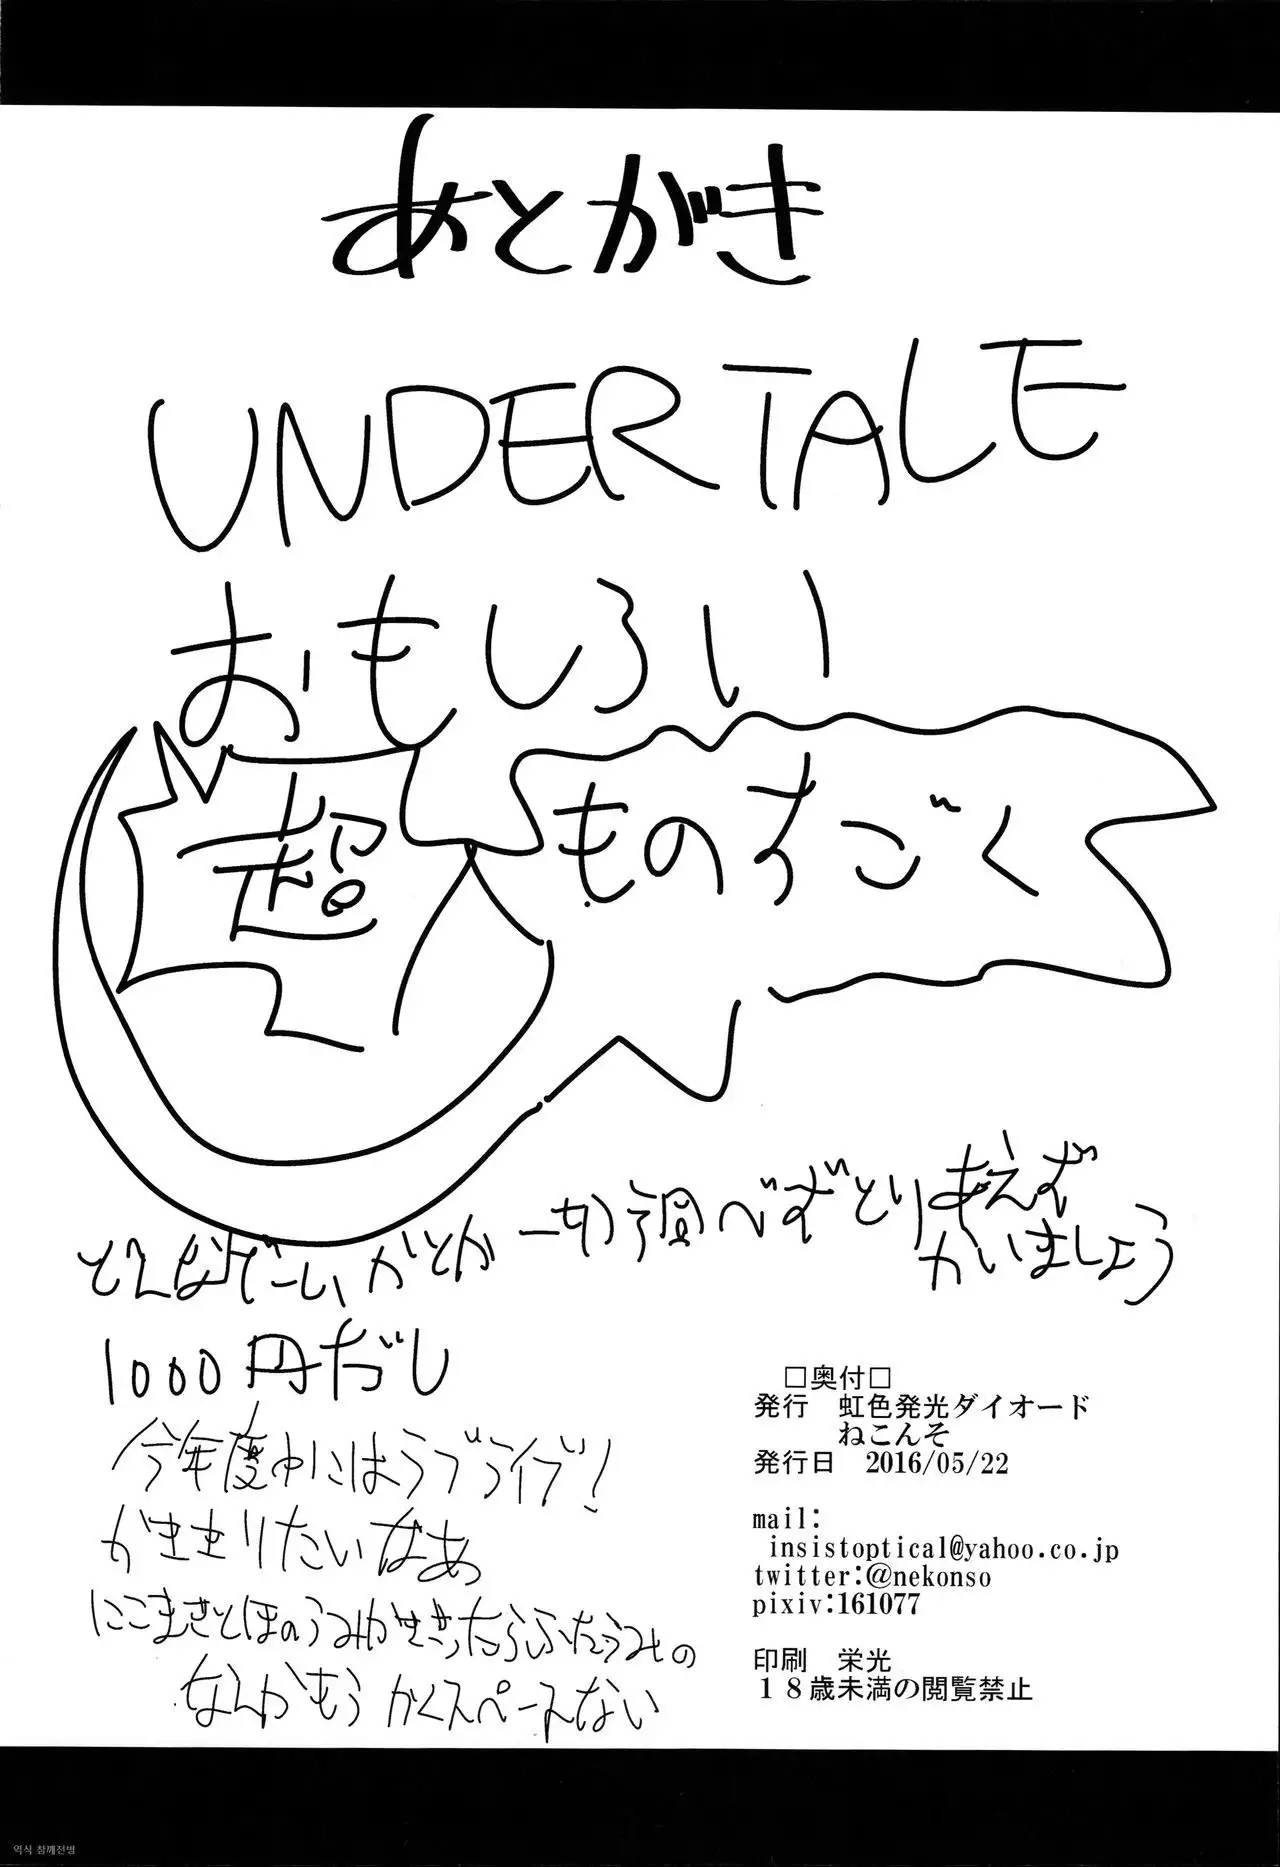 あとがき
UNDERTALE
おもしろい
超 ものすごく
どんなゲームかとか一切調べずとりあえず
かいましょう
1000円だし
今年度中にはラブライブ!
かききりたいなあ
にこまきとほのうみがかききったらふたうみの
なんかもうかくスペースない
□奥付□
発行 虹色発光ダイオード
ねこんそ
発行日 2016/05/22
mail:
insistoptical@yahoo.co.jp
twitter:@nekonso
pixiv:161077
印刷 栄光
18歳未満の閲覧禁止
역식 참깨전병